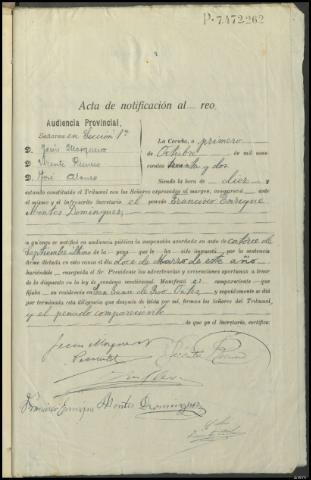 P-7.472.262
Acta de notificación al reo.
Audiencia Provincial.
Señores en Sección 1ª
D. Jesús Marquina
D. Vicente
D. José Alonso
La Coruña, a primero
de Octubre de mil nove-
cientos treinta y dos
Siendo la hora de diez y
estando constituído el Tribunal con los Señores expresados al margen, comparece ante
el mismo y el infrascrito Secretario el penado Francisco Enrique
Montes Domínguez,
a quien se notificó en audiencia pública la suspensión acordada en auto de catorce de
Septiembre último de la pena que le ha sido impuesta, por la sentencia
firme dictada en esta causa el día doce de Marzo de este año,
haciéndole, enseguida el Sr. Presidente las advertencias y prevenciones oportunas a tenor
de lo dispuesto en la ley de condena condicional. Manifestó el compareciente que
fijaba su residencia en San Juan de
por terminada esta diligencia que después de leída por mí, forman los señores del Tribunal,
y el penado compareciente
de que yo el Secretario, certifico:
Francisco Enrique Montes Dominguez